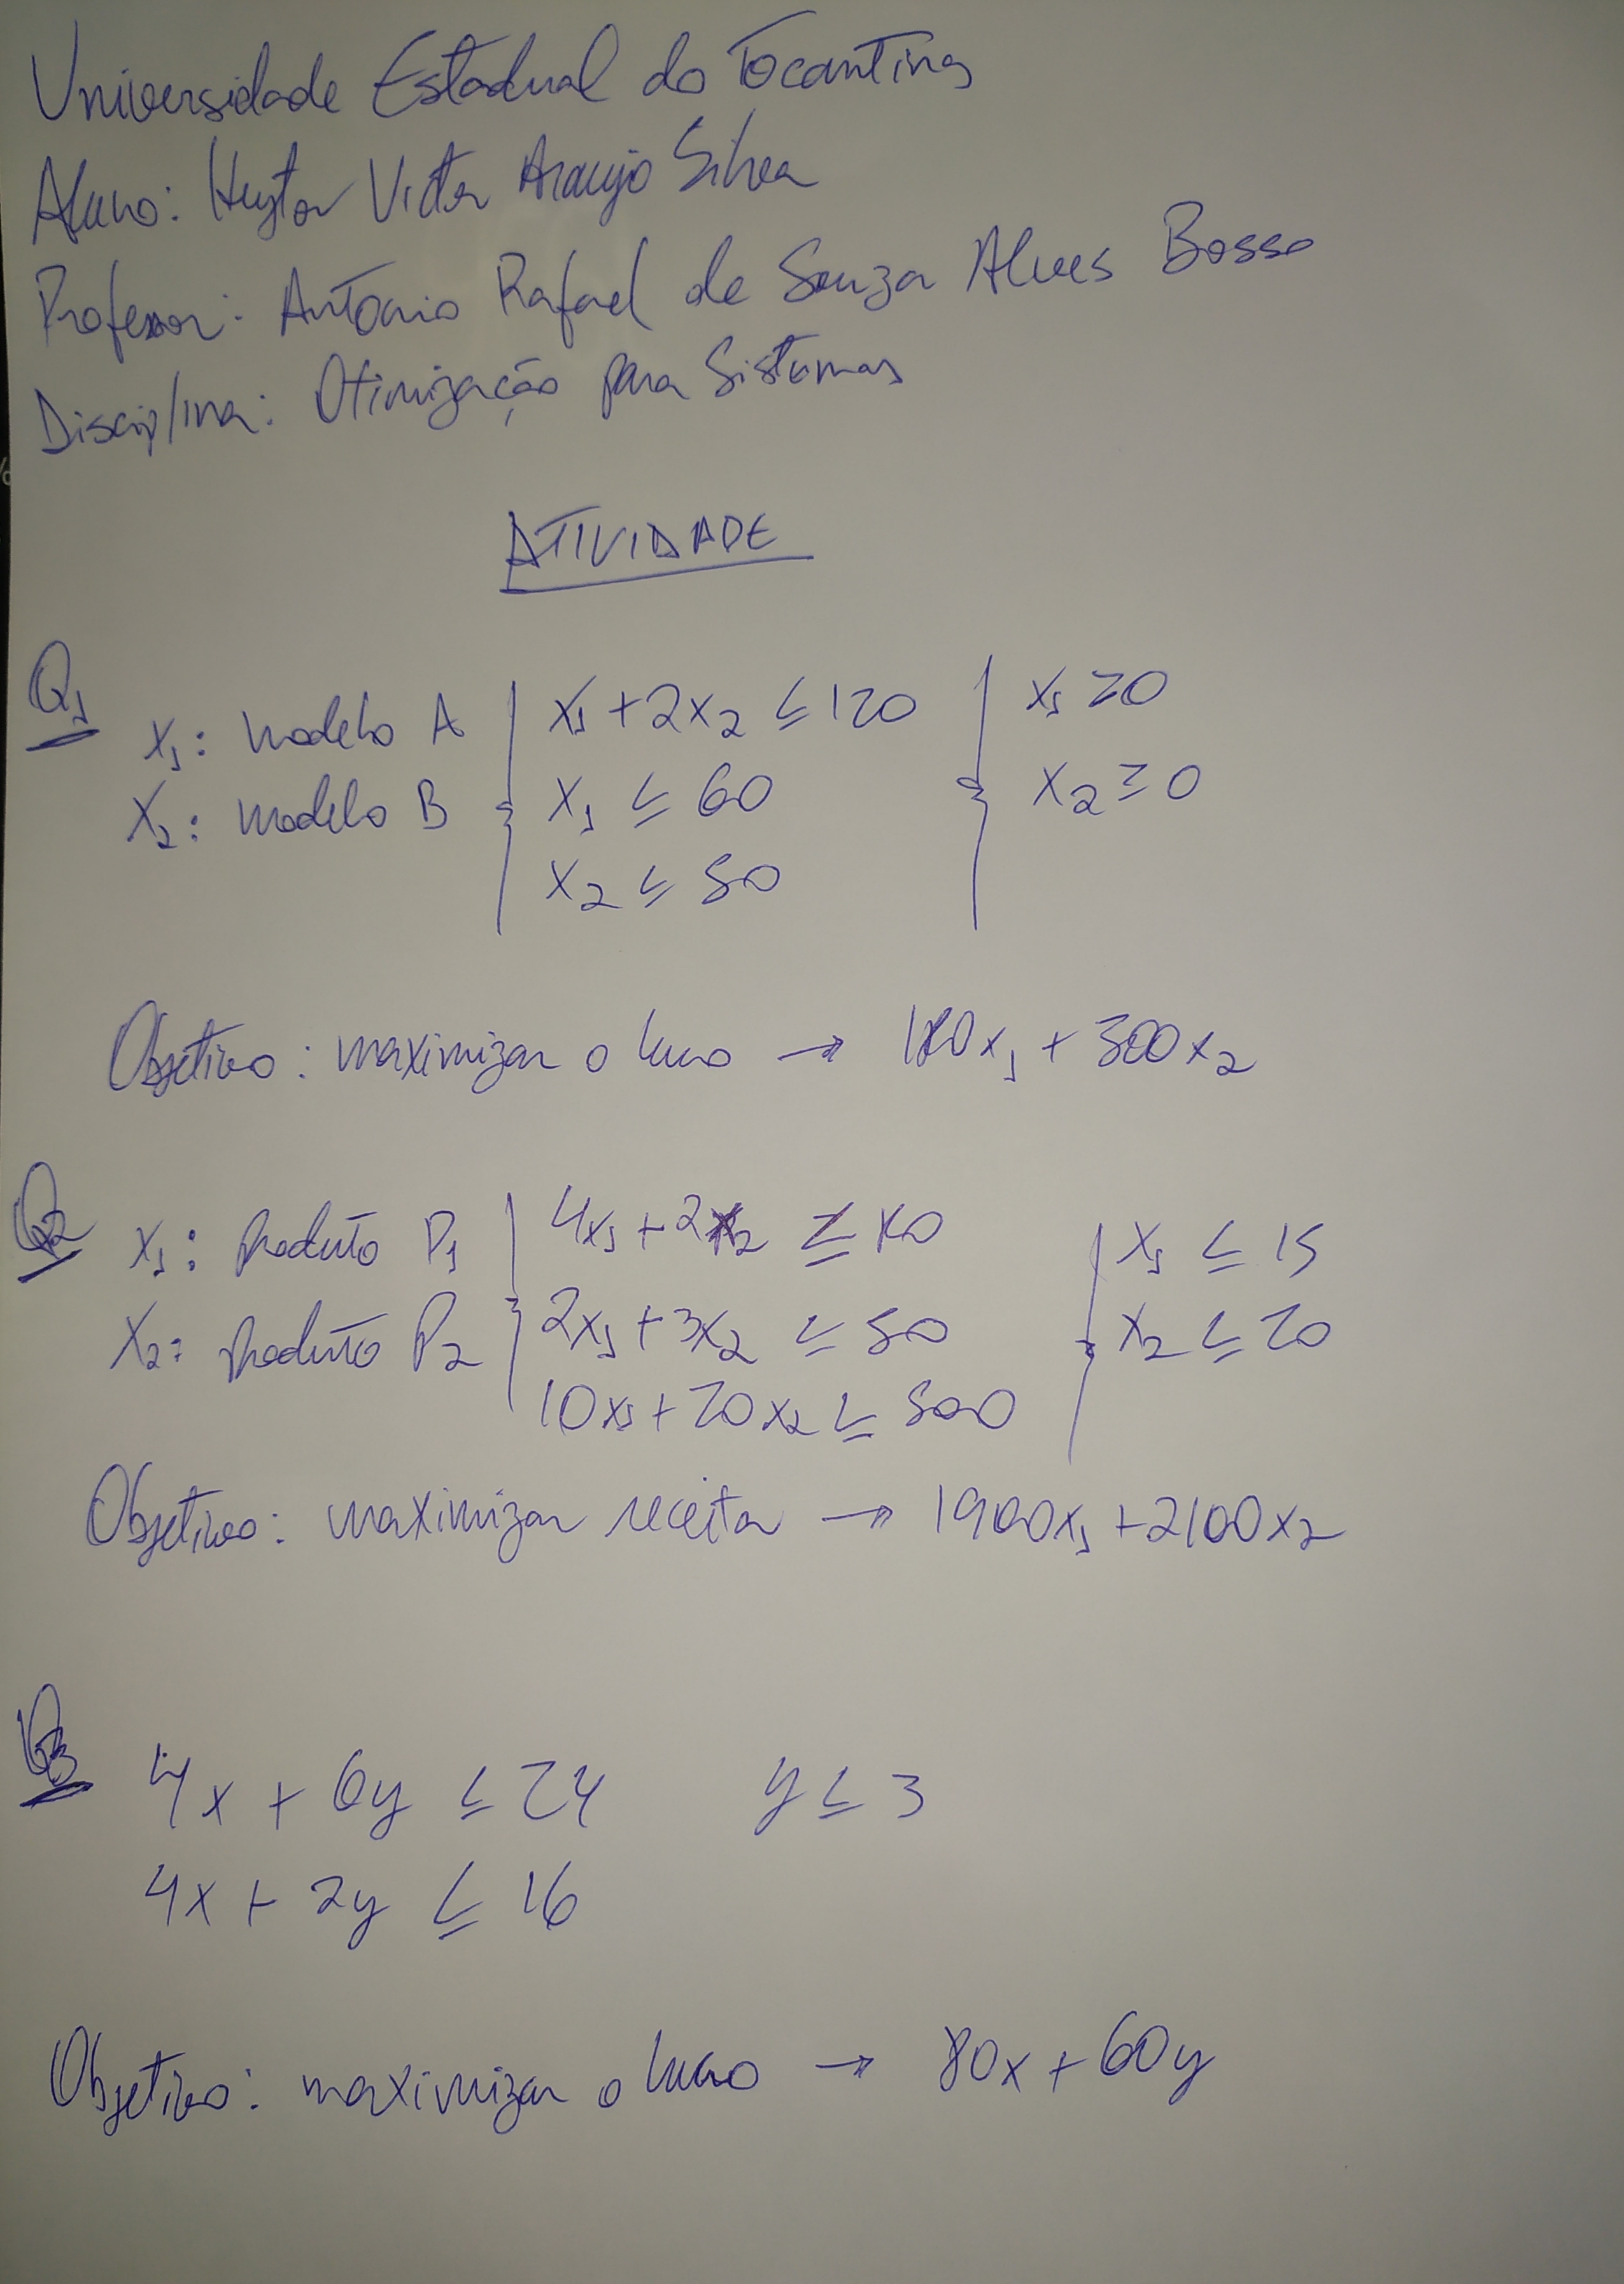 Universidade Estadual do Tocantins
Aluno: Heytor Victor Araujo Silva
Professor: Antonio Rafael de Souza Alves Bosso
Disciplina: Otimização para Sistemas
ATIVIDADE
Q1
x1: modelo A | x1 + 2x2 ≤ 120 | x1 ≥ 0
x2: modelo B | x1 ≤ 60 | x2 ≥ 0
x2 ≤ 50
Objetivo: maximizar o lucro → 180x1 + 300x2
Q2 x1: produto P1 | 4x1 + 2x2 ≤ | x1 ≤ 15
x2: produto P2 | 2x1 + 3x2 ≤ 50 | x2 ≤ 20
10x1 + 20x2 ≤ 500
Objetivo: maximizar receita → 1900x1 + 2100x2
Q3 4x + 6y ≤ 24 y ≤ 3
4x + 2y ≤ 16
Objetivo: maximizar o lucro → 80x + 60y